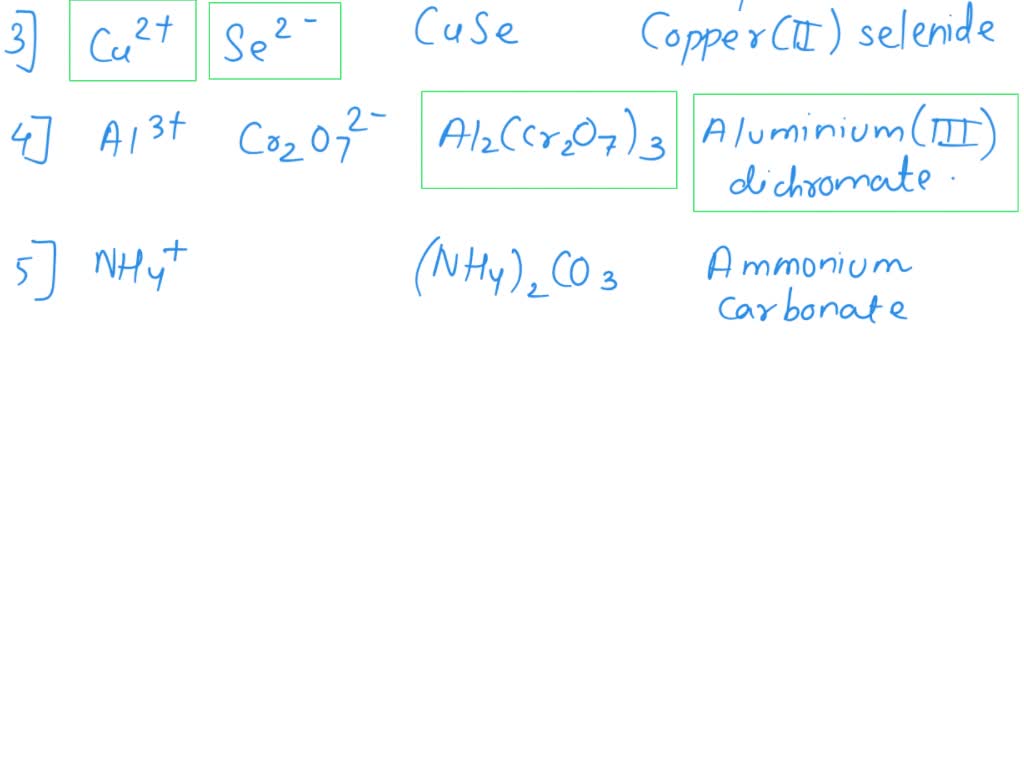 3] Cu²⁺ Se²⁻ CuSe Copper(II) selenide
4] Al³⁺ Cr₂O₇²⁻ Al₂(Cr₂O₇)₃ Aluminium(III)
dichromate.
5] NH₄⁺ (NH₄)₂CO₃ Ammonium
carbonate